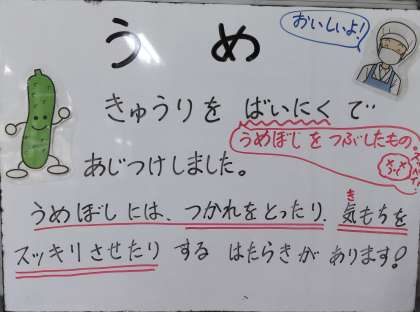 うめ
おいしいよ!
きゅうりを ばいにくで
うめぼしをつぶしたもの。
あじつけしました。
うめぼしには、つかれをとったり、気もちを
き
スッキリさせたり する はたらきが あります!